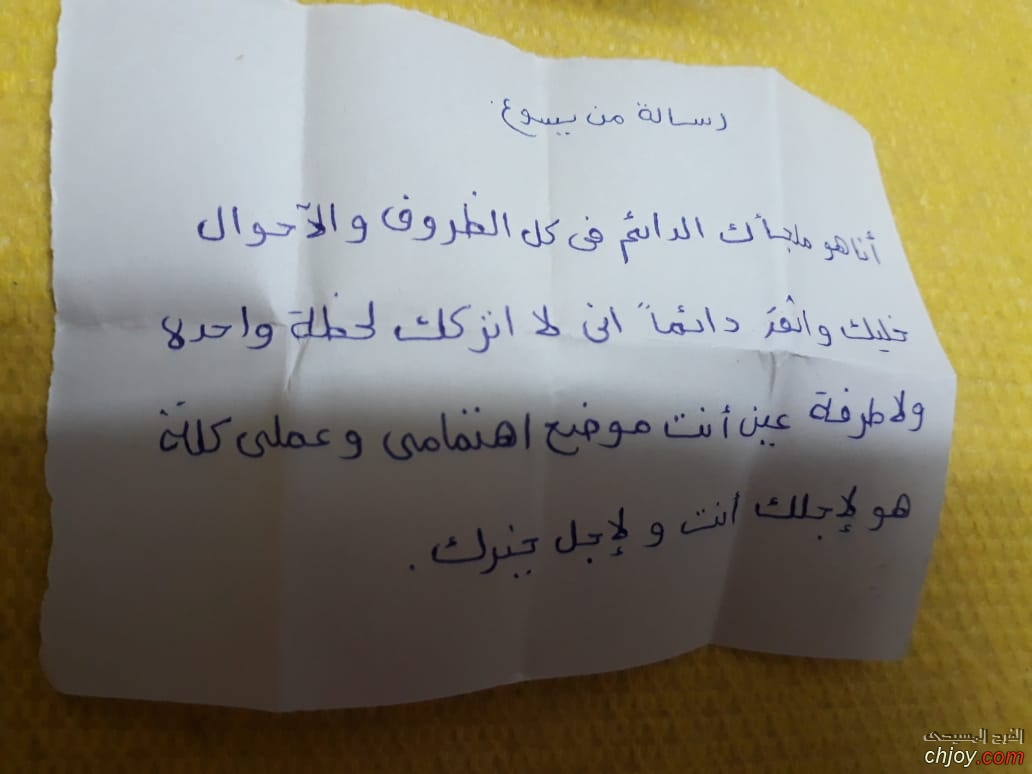 رسالة من يسوع
أنا هو ملجأك الدائم فى كل الظروف والآحوال
خليك واثق دائماً انى لا اتركك لحظة واحده
ولا طرفة عين أنت موضع اهتمامى وعملى كلة
هو لإجلك أنت و لإجل خيرك.
الفرح المسيحى
chjoy.com